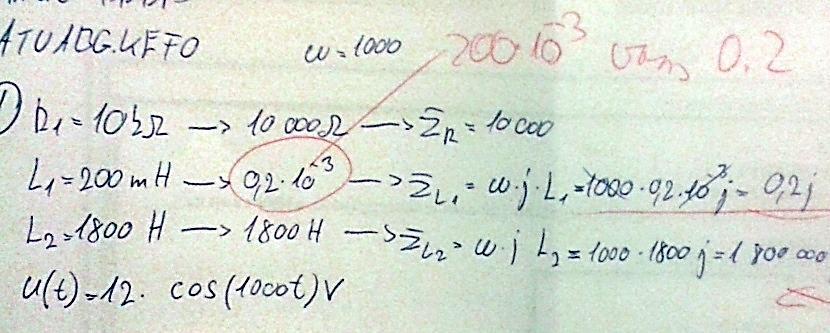 ω=1000 200·10⁻³ 0.2
1) R₁=10kΩ → 10 000Ω → Z̄R=10000
L₁=200mH → 0,2·10⁻³ → Z̄L₁=ω·j·L₁=1000·0,2·10⁻³j=0,2j
L₂=1800 H → 1800H → Z̄L₂=ω·j L₂=1000·1800j=1 800 000
U(t)=12· cos(1000t)V